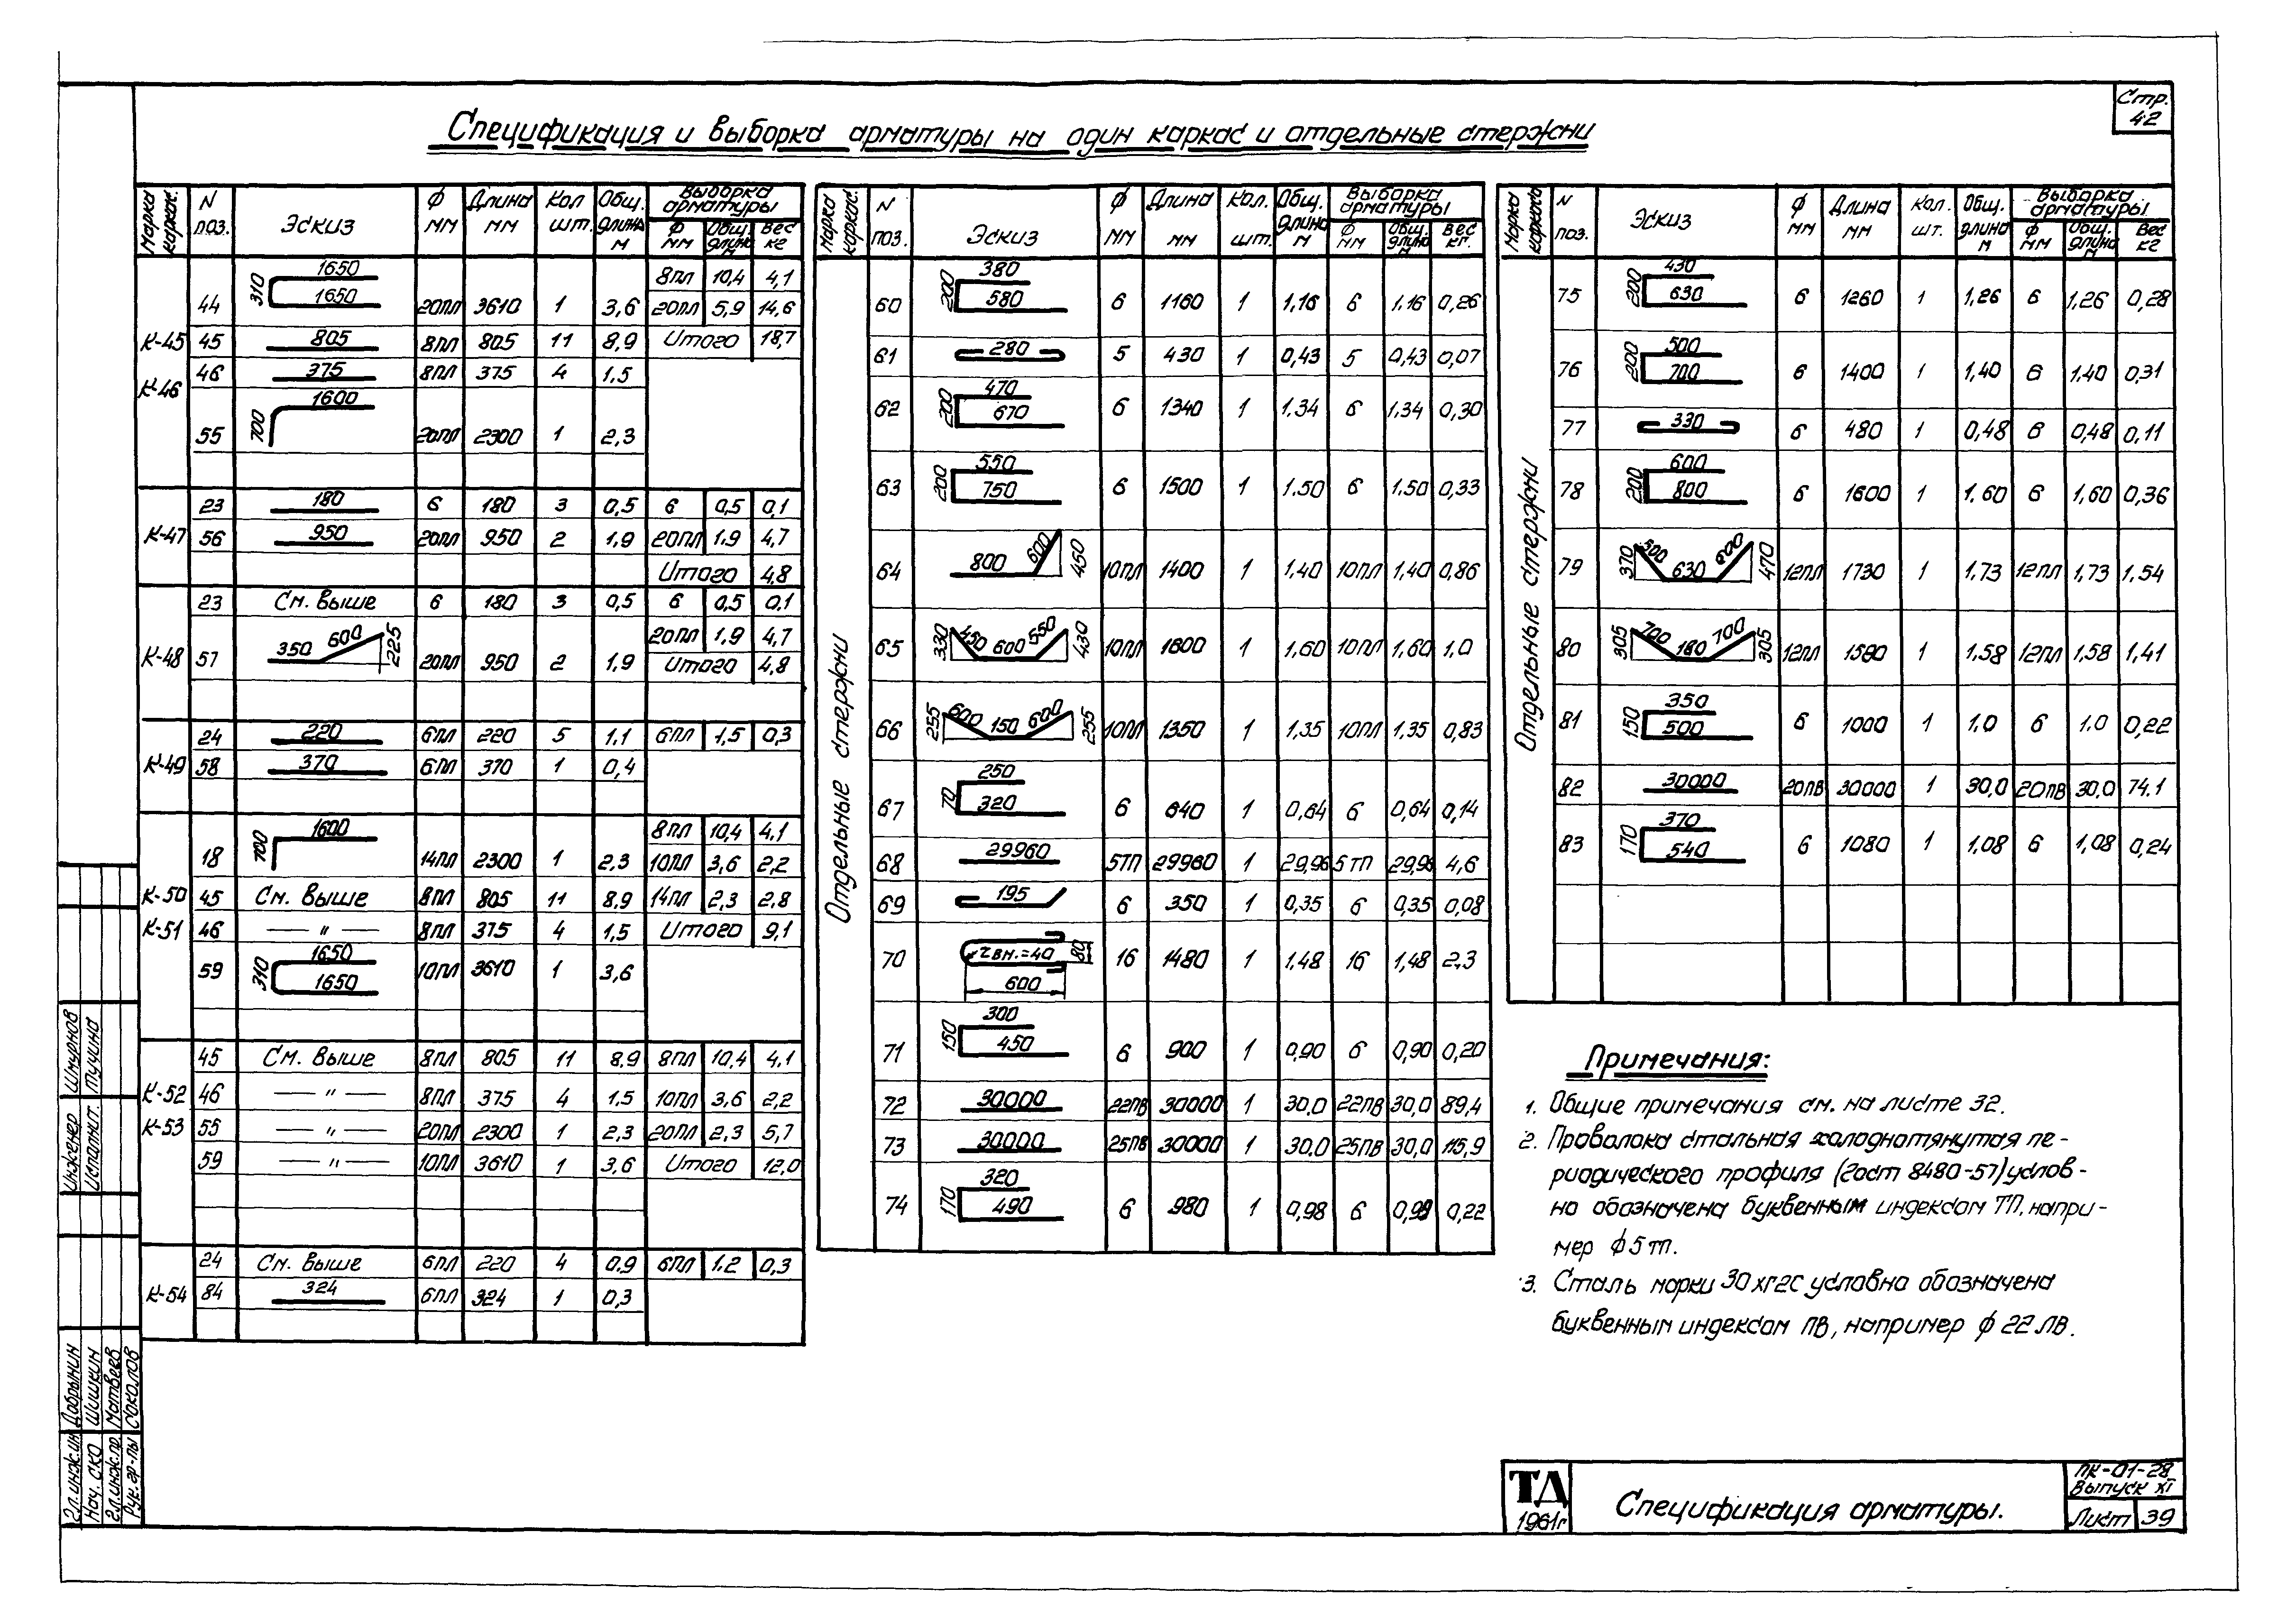 Стр.
42
Спецификация и выборка арматуры на один каркас и отдельные стержни
Марка каркас. N поз. Эскиз Ф мм Длина мм Кол шт. Общ. длина м Выборка арматуры Ф мм Общ. длина м Вес кг
К-45 К-46
44 310 1650 1650 20пл 3610 1 3,6 8пл 10,4 4,1
20пл 5,9 14,6
45 805 8пл 805 11 8,9 Итого 18,7
46 375 8пл 375 4 1.5
55 700 1600 20пл 2300 1 2.3
К-47
23 180 6 180 3 0,5 6 0,5 0,1
56 950 20пл 950 2 1.9 20пл 1.9 4,7
Итого 4,8
К-48
23 См. Выше 6 180 3 0,5 6 0,5 0,1
57 350 600 225 20пл 950 2 1.9 20пл 1,9 4,7
Итого 4,8
К-49
24 220 6пл 220 5 1.1 6пл 1,5 0,3
58 370 6пл 370 1 0,4
К-50 К-51
18 700 1600 14пл 2300 1 2.3 8пл 10,4 4,1
10пл 3,6 2,2
45 См. Выше 8пл 805 11 8,9 14пл 2.3 2,8
46 — " — 8пл 375 4 1,5 Итого 9,1
59 310 1650 1650 10пл 3610 1 3,6
К-52 К-53
45 См. Выше 8пл 805 11 8,9 8пл 10,4 4,1
46 — " — 8пл 375 4 1.5 10пл 3,6 2,2
55 — " — 20пл 2300 1 2.3 20пл 2,3 5,7
59 — " — 10пл 3610 1 3,6 Итого 12,0
К-54
24 См. Выше 6пл 220 4 0,9 6пл 1.2 0,3
84 324 6пл 324 1 0,3
Марка каркас. N поз. Эскиз Ф мм Длина мм Кол. шт. Общ. длина м Выборка арматуры Ф мм Общ. длина м Вес кг.
Отдельные стержни
60 200 380 580 6 1160 1 1,16 6 1,16 0,26
61 280 5 430 1 0,43 5 0,43 0,07
62 200 470 670 6 1340 1 1.34 6 1,34 0,30
63 200 550 750 6 1500 1 1.50 6 1.50 0,33
64 800 600 450 10пл 1400 1 1,40 10пл 1,40 0,86
65 330 450 600 550 430 10пл 1600 1 1,60 10пл 1,60 1,0
66 255 600 150 600 255 10пл 1350 1 1,35 10пл 1.35 0,83
67 70 250 320 6 640 1 0,64 6 0,64 0,14
68 29960 5ТП 29960 1 29,96 5тп 29,96 4,6
69 195 6 350 1 0,35 6 0,35 0,08
70 r вн.=40 80 600 16 1480 1 1,48 16 1,48 2.3
71 150 300 450 6 900 1 0,90 6 0,90 0,20
72 30000 22пв 30000 1 30.0 22пв 30,0 89,4
73 30000 25пв 30000 1 30.0 25пв 30,0 115,9
74 170 320 490 6 980 1 0,98 6 0,98 0,22
Марка каркаса N поз. Эскиз Ф мм Длина мм Кол. шт. Общ. длина м Выборка арматуры Ф мм Общ. длина м Вес кг
Отдельные стержни
75 200 430 630 6 1260 1 1,26 6 1,26 0,28
76 200 500 700 6 1400 1 1,40 6 1.40 0,31
77 330 6 480 1 0,48 6 0,48 0,11
78 200 600 800 6 1600 1 1.60 6 1,60 0,36
79 370 500 630 600 470 12пл 1730 1 1.73 12пл 1,73 1,54
80 305 700 180 700 305 12пл 1580 1 1.58 12пл 1.58 1,41
81 150 350 500 6 1000 1 1.0 6 1.0 0,22
82 30000 20пв 30000 1 30,0 20пв 30,0 74.1
83 170 370 540 6 1080 1 1,08 6 1,08 0,24
Примечания:
1. Общие примечания см. на листе 32.
2. Проволока стальная холоднотянутая пе-
риодического профиля (гост 8480-57) услов-
но обозначена буквенным индексом ТП, напри-
мер ф 5 тп.
3. Сталь марки 30хг2с условно обозначена
буквенным индексом ПВ, например ф 22 ПВ.
Инженер Шмурнов
Исполнит. Пучина
Гл.инж.ин Добрынин
Нач. СКО Шишкин
Гл.инж.пр. Матвеев
Рук.гр-пы Соколов
ТД
1961г
Спецификация арматуры.
ПК-01-28
Выпуск XI
Лист 39